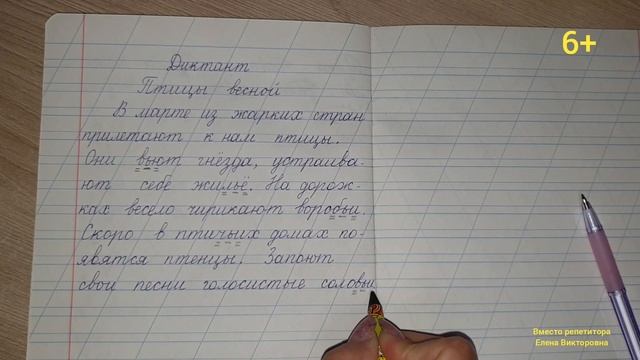 6+
Диктант
Птицы весной
В марте из жарких стран
прилетают к нам птицы.
Они вьют гнёзда, устраива-
ют себе жильё. На дорож-
ках весело чирикают воробьи.
Скоро в птичьих домах по-
явятся птенцы. Запоют
свои песни голосистые соловьи
Вместо репетитора
Елена Викторовна